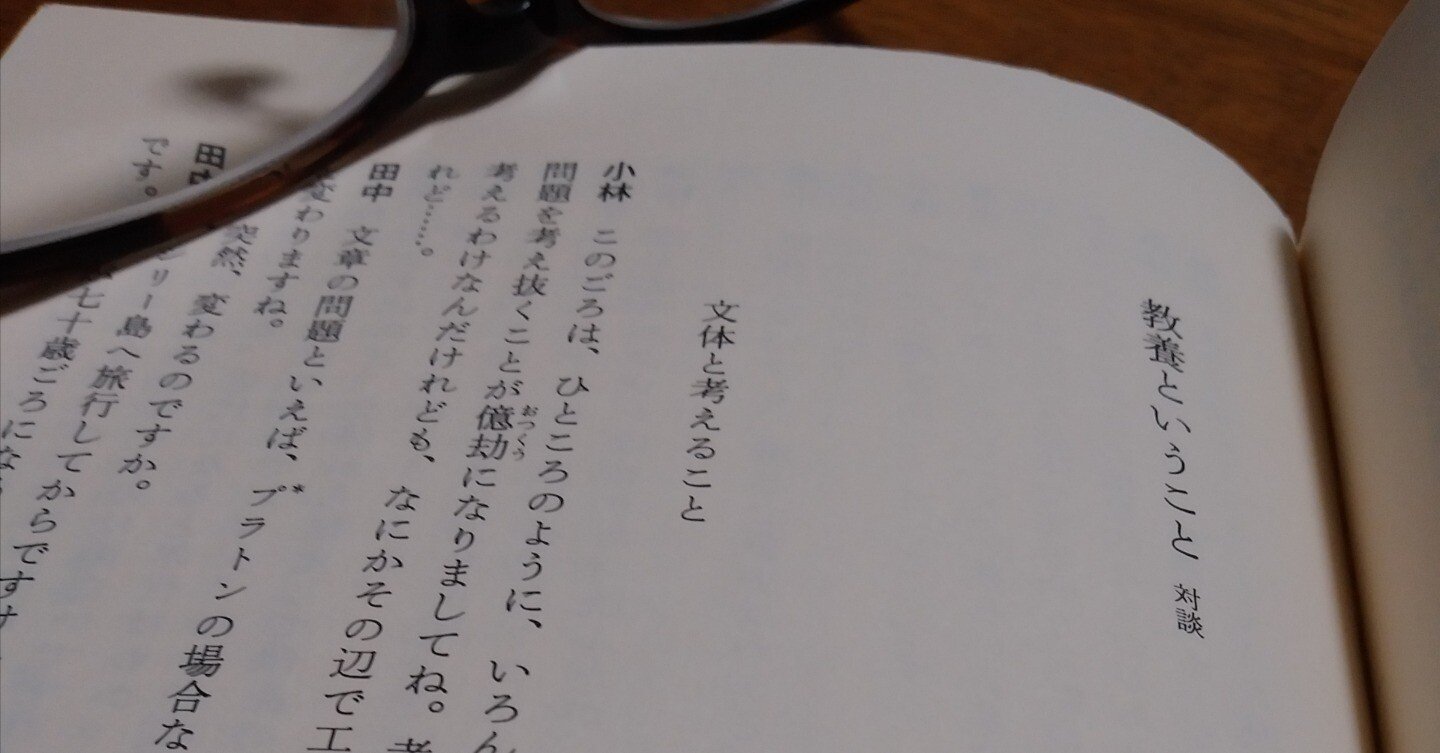 教養ということ 対談
文体と考えること
小林 このごろは、ひところのように、いろん
問題を考え抜くことが億劫になりましてね。考
おつくう
考えるわけなんだけれども、なにかその辺で工
れど……。
田中 文章の問題といえば、*プラトンの場合な
変わりますね。
田 突然、変わるのですか。
です。 リー島へ旅行してからですけ
七十歳ごろにな